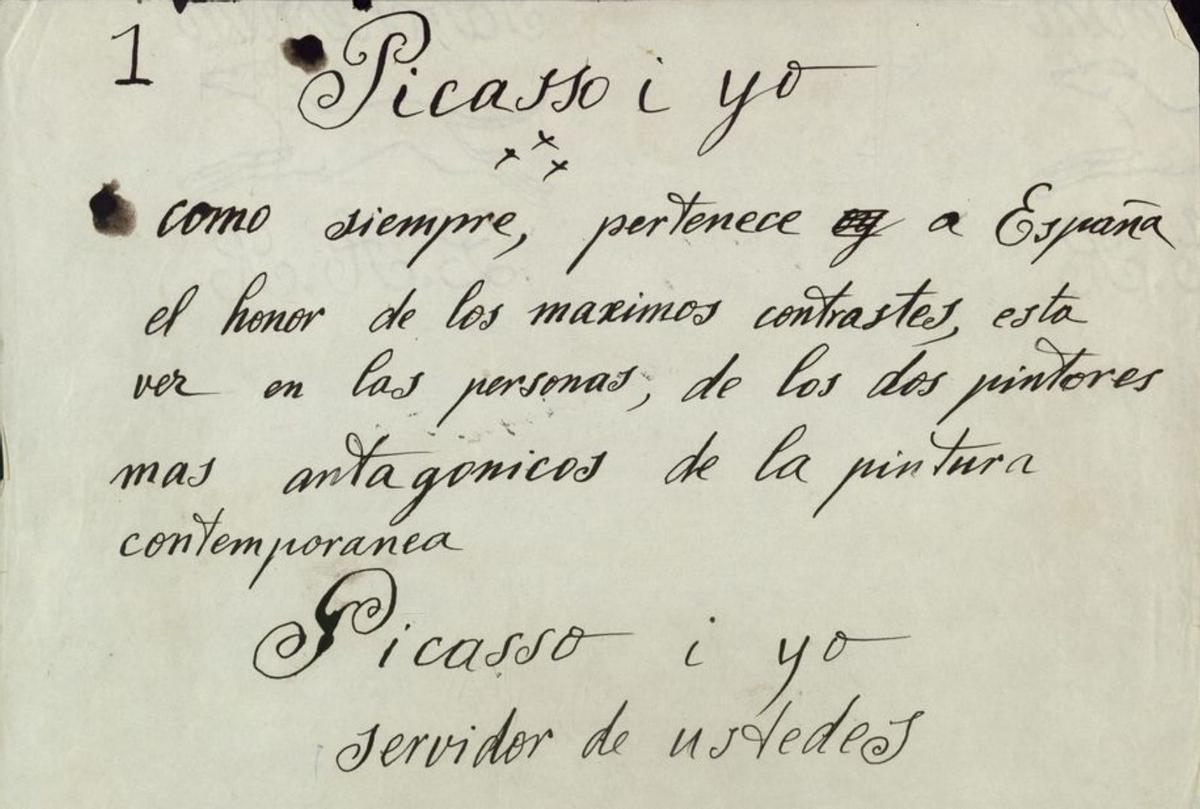 1 Picasso i yo
como siempre, pertenece a España
el honor de los maximos contrastes, esta
vez en las personas, de los dos pintores
mas antagonicos de la pintura
contemporanea
Picasso i yo
servidor de ustedes